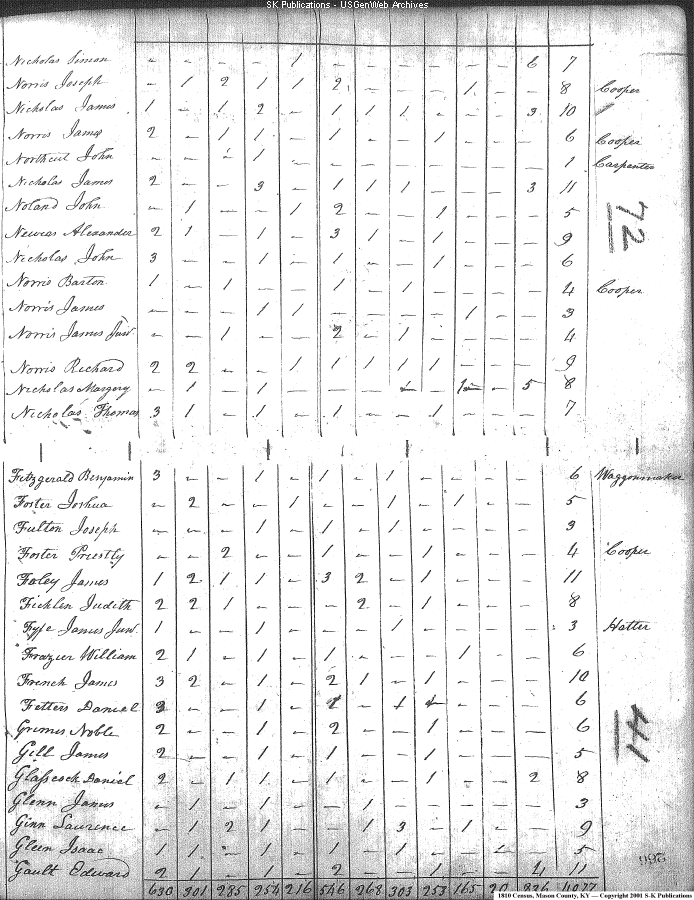 SK Publications - USGenWeb Archives
Nicholas Simon - - - - 1 - - - - - - 6 7
Norris Joseph - 1 2 1 1 2 - - - 1 - - 8 Cooper
Nicholas James 1 - 1 2 - 1 1 1 - - - 3 10
Norris James 2 - 1 1 - 1 - - 1 - - - 6 Cooper
Northcut John - - - 1 - - - - - - - - 1 Carpenter
Nicholas James 2 - - 3 - 1 1 1 - - - 3 11
Noland John - 1 - - 1 2 - - 1 - - - 5
Alexander 2 1 - 1 - 3 1 - 1 - - - 9
Nicholas John 3 - - 1 - 1 - - 1 - - - 6
Norris Barton 1 - 1 - - 1 - 1 - - - - 4 Cooper
Norris James - - - 1 1 - - - - 1 - - 3
Norris James Junr - - 1 - - 2 - 1 - - - - 4
Norris Richard 2 2 - - 1 1 1 1 1 - - - 9
Nicholas Margery - 1 - 1 - - - 1 - 1 - 5 8
Nicholas Thomas 3 1 - 1 - 1 - - 1 - - - 7
72
Fitzgerald Benjamin 3 - - 1 - 1 - 1 - - - - 6 Waggonmaker
Foster Joshua - 2 - - 1 - - 1 - 1 - - 5
Fulton Joseph - - - 1 - 1 - 1 - - - - 3
Foster Priestly - - 2 - - 1 - - 1 - - - 4 Cooper
Foley James 1 2 1 1 - 3 2 - 1 - - - 11
Ficklin Judith 2 2 1 - - - 2 - 1 - - - 8
Fyfe James Junr. 1 - - 1 - - - 1 - - - - 3 Hatter
Frazier William 2 1 - 1 - 1 - - - 1 - - 6
French James 3 2 - 1 - 2 1 - 1 - - - 10
Fetters Daniel - - 1 - - 1 1 - - - 6
Grimes Noble 2 - - 1 - 2 - - 1 - - - 6
Gill James 2 - - 1 - 1 - - 1 - - - 5
Glasscock Daniel 2 - 1 1 - 1 - - 1 - - 2 8
Glenn James - 1 - 1 - - 1 - - - - - 3
Ginn Laurence - 1 2 1 - - 1 3 - 1 - - 9
Gleen Isaac 1 1 - 1 - 1 - 1 - - - - 5
Gault Edward 2 1 - 1 - 2 - - 1 - - 4 11
41
266
630 301 285 254 216 546 268 303 253 165 20 836 4077
1810 Census, Mason County, KY — Copyright 2001 S-K Publications